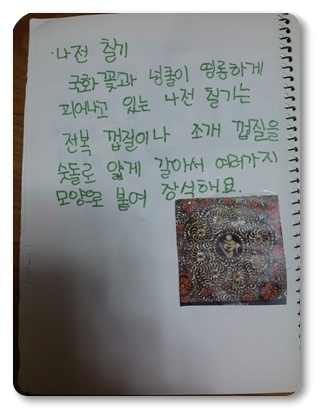 ·나전 칠기
국화꽃과 넝쿨이 영롱하게
피어나고 있는 나전 칠기는
전복 껍질이나 조개 껍질을
숫돌로 얇게 갈아서 여러가지
모양으로 붙여 장식해요.